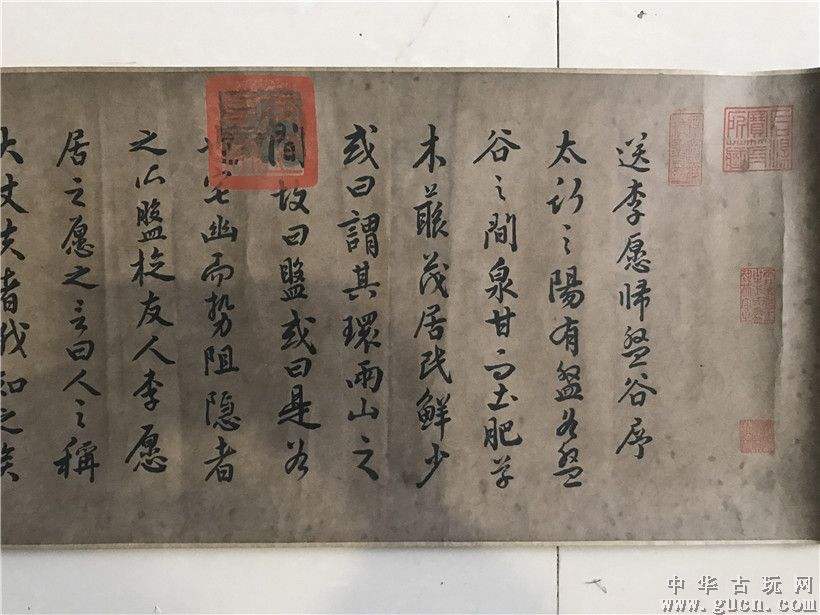 送李愿帰盤谷序
太行之陽有盤谷盤
谷之間泉甘而土肥草
木藂茂居民鮮少
或曰謂其環兩山之
間故曰盤或曰是谷
宅幽而势阻隐者
之所盤旋友人李愿
居之愿之言曰人之稱
大丈夫者我知之矣
中华古玩网
www.gucn.com